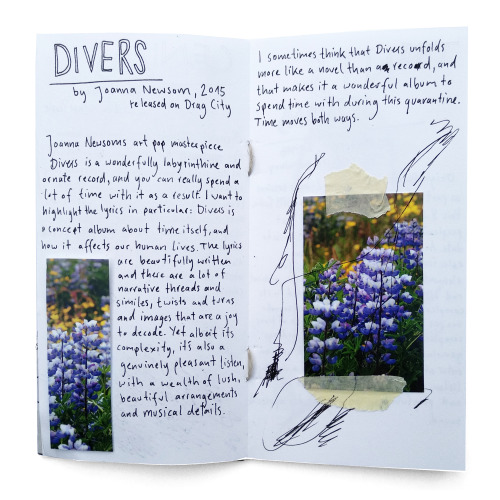 DIVERS
by Joanna Newsom, 2015
released on Drag City
Joanna Newsoms art pop masterpiece
Divers is a wonderfully labyrinthine and
ornate record, and you can really spend a
lot of time with it as a result. I want to
highlight the lyrics in particular: Divers is
a concept album about time itself, and
how it affects our human lives. The lyrics
are beautifully written
and there are a lot of
narrative threads and
similes, twists and turns
and images that are a joy
to decode. Yet albeit its
complexity, it's also a
genuinely pleasant listen,
with a wealth of lush,
beautiful arrangements
and musical details.
I sometimes think that Divers unfolds
more like a novel than a record, and
that makes it a wonderful album to
spend time with during this quarantine.
Time moves both ways.